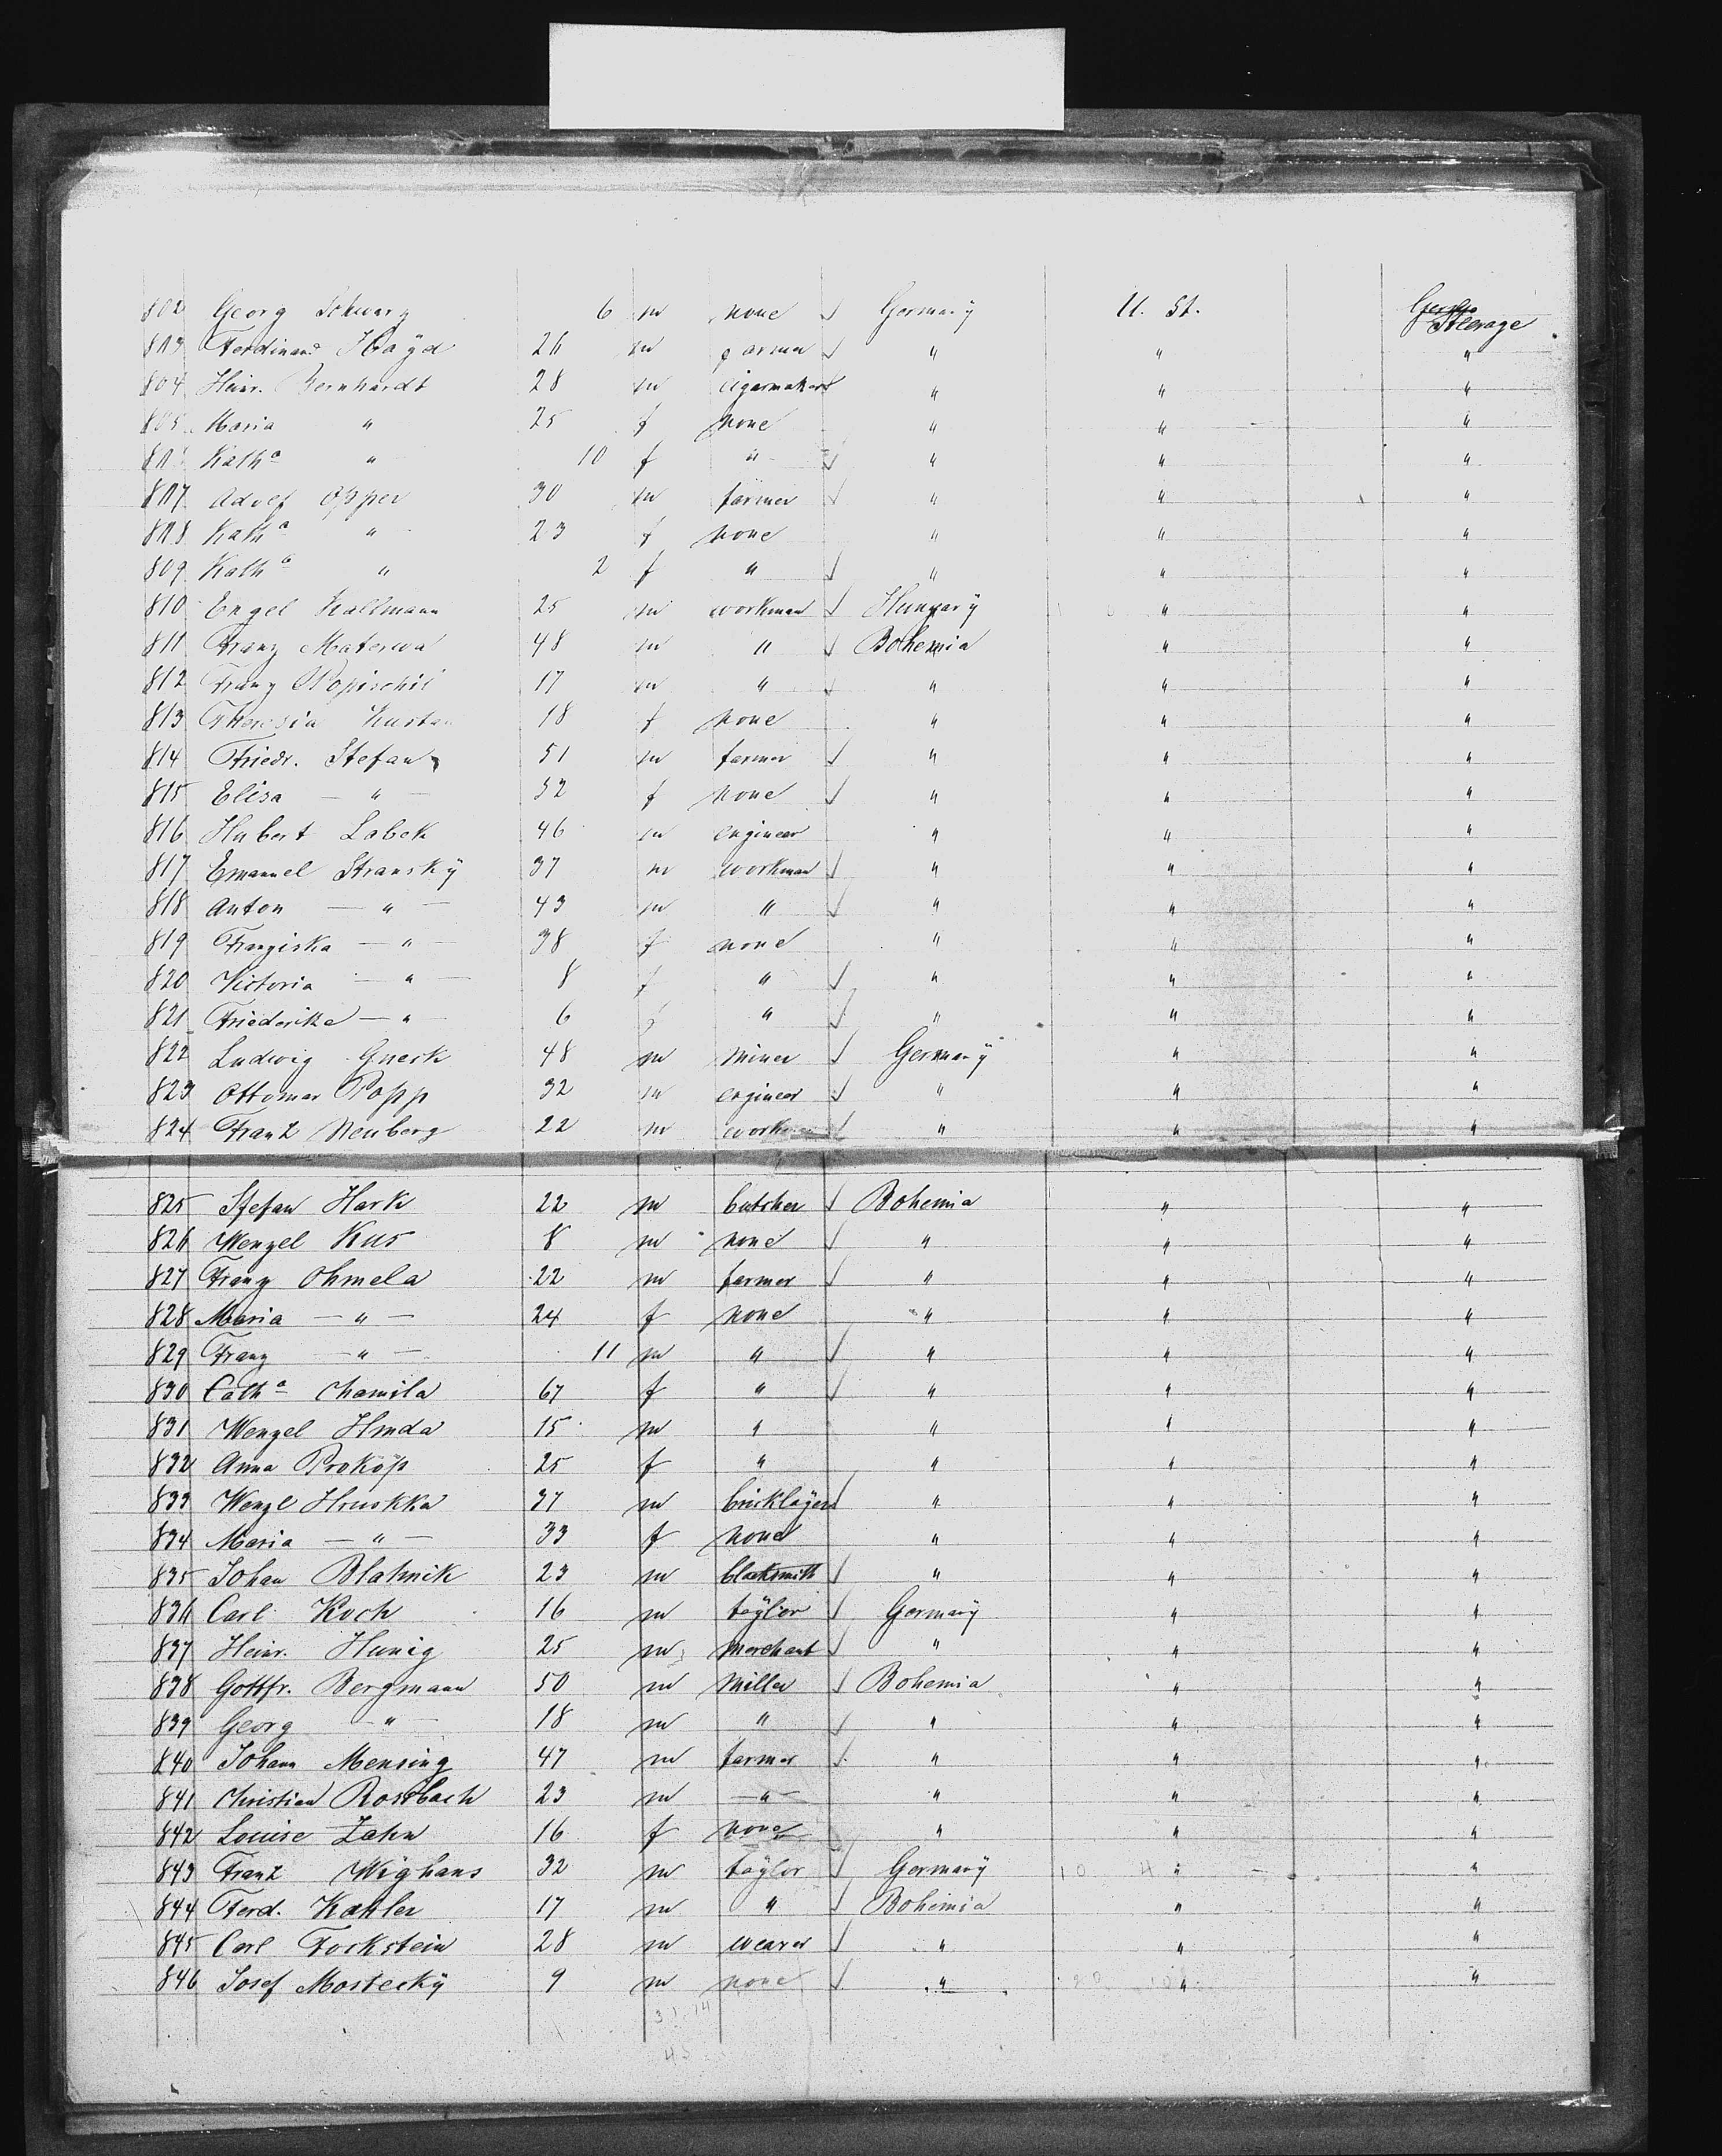 802 Georg Schwarz 6 m none Germany U. St. Steerage
803 Ferdinand Hayd 26 m farmer " " "
804 Heinr. Bernhardt 28 m cigarmaker " " "
805 Maria " 25 f none " " "
806 Kath^a " 10 f " " " "
807 Adolf Opper 30 m farmer " " "
808 Kath^a " 23 f none " " "
809 Kath^a " 2 f " " " "
810 Engel Kallmann 25 m workman Hungary " "
811 Franz Materwa 48 m " Bohemia " "
812 Franz Popischil 17 m " " " "
813 Theresia 18 f none " " "
814 Friedr. Stefan 51 m farmer " " "
815 Elisa — " — 52 f none " " "
816 Hubert Labek 46 m engineer " " "
817 Emanuel Stransky 37 m workman " " "
818 Anton — " — 43 m " " " "
819 Franziska — " — 38 f none " " "
820 Victoria — " — 8 f " " " "
821 Friederike — " — 6 f " " " "
822 Ludwig Gneck 48 m miner Germany " "
823 Ottomar Popp 32 m engineer " " "
824 Frank Neuberg 22 m workman " " "
825 Stefan Hark 22 m butcher Bohemia " "
826 Wenzel Kus 8 m none " " "
827 Franz Ohmela 22 m farmer " " "
828 Maria — " — 24 f none " " "
829 Franz — " — 11 m " " " "
830 Cath^a Chamila 67 f " " " "
831 Wenzel Hmda 15 m " " " "
832 Anna Prokop 25 f " " " "
833 Wenzl Hruskka 37 m bricklayer " " "
834 Maria — " — 33 f none " " "
835 Johan Blahnik 23 m blacksmith " " "
836 Carl Koch 16 m taylor Germany " "
837 Heinr. Hunig 25 m merchant " " "
838 Gottfr. Bergmann 50 m miller Bohemia " "
839 Georg — " — 18 m " " " "
840 Johann Mensing 47 m farmer " " "
841 Christian Rossbach 23 m — " — " " "
842 Louise Zahn 16 f none " " "
843 Frank Wighans 32 m taylor Germany " "
844 Ferd. Kahler 17 m " Bohemia " "
845 Carl Fockstein 28 m weaver " " "
846 Josef Mostecky 9 m none " " "